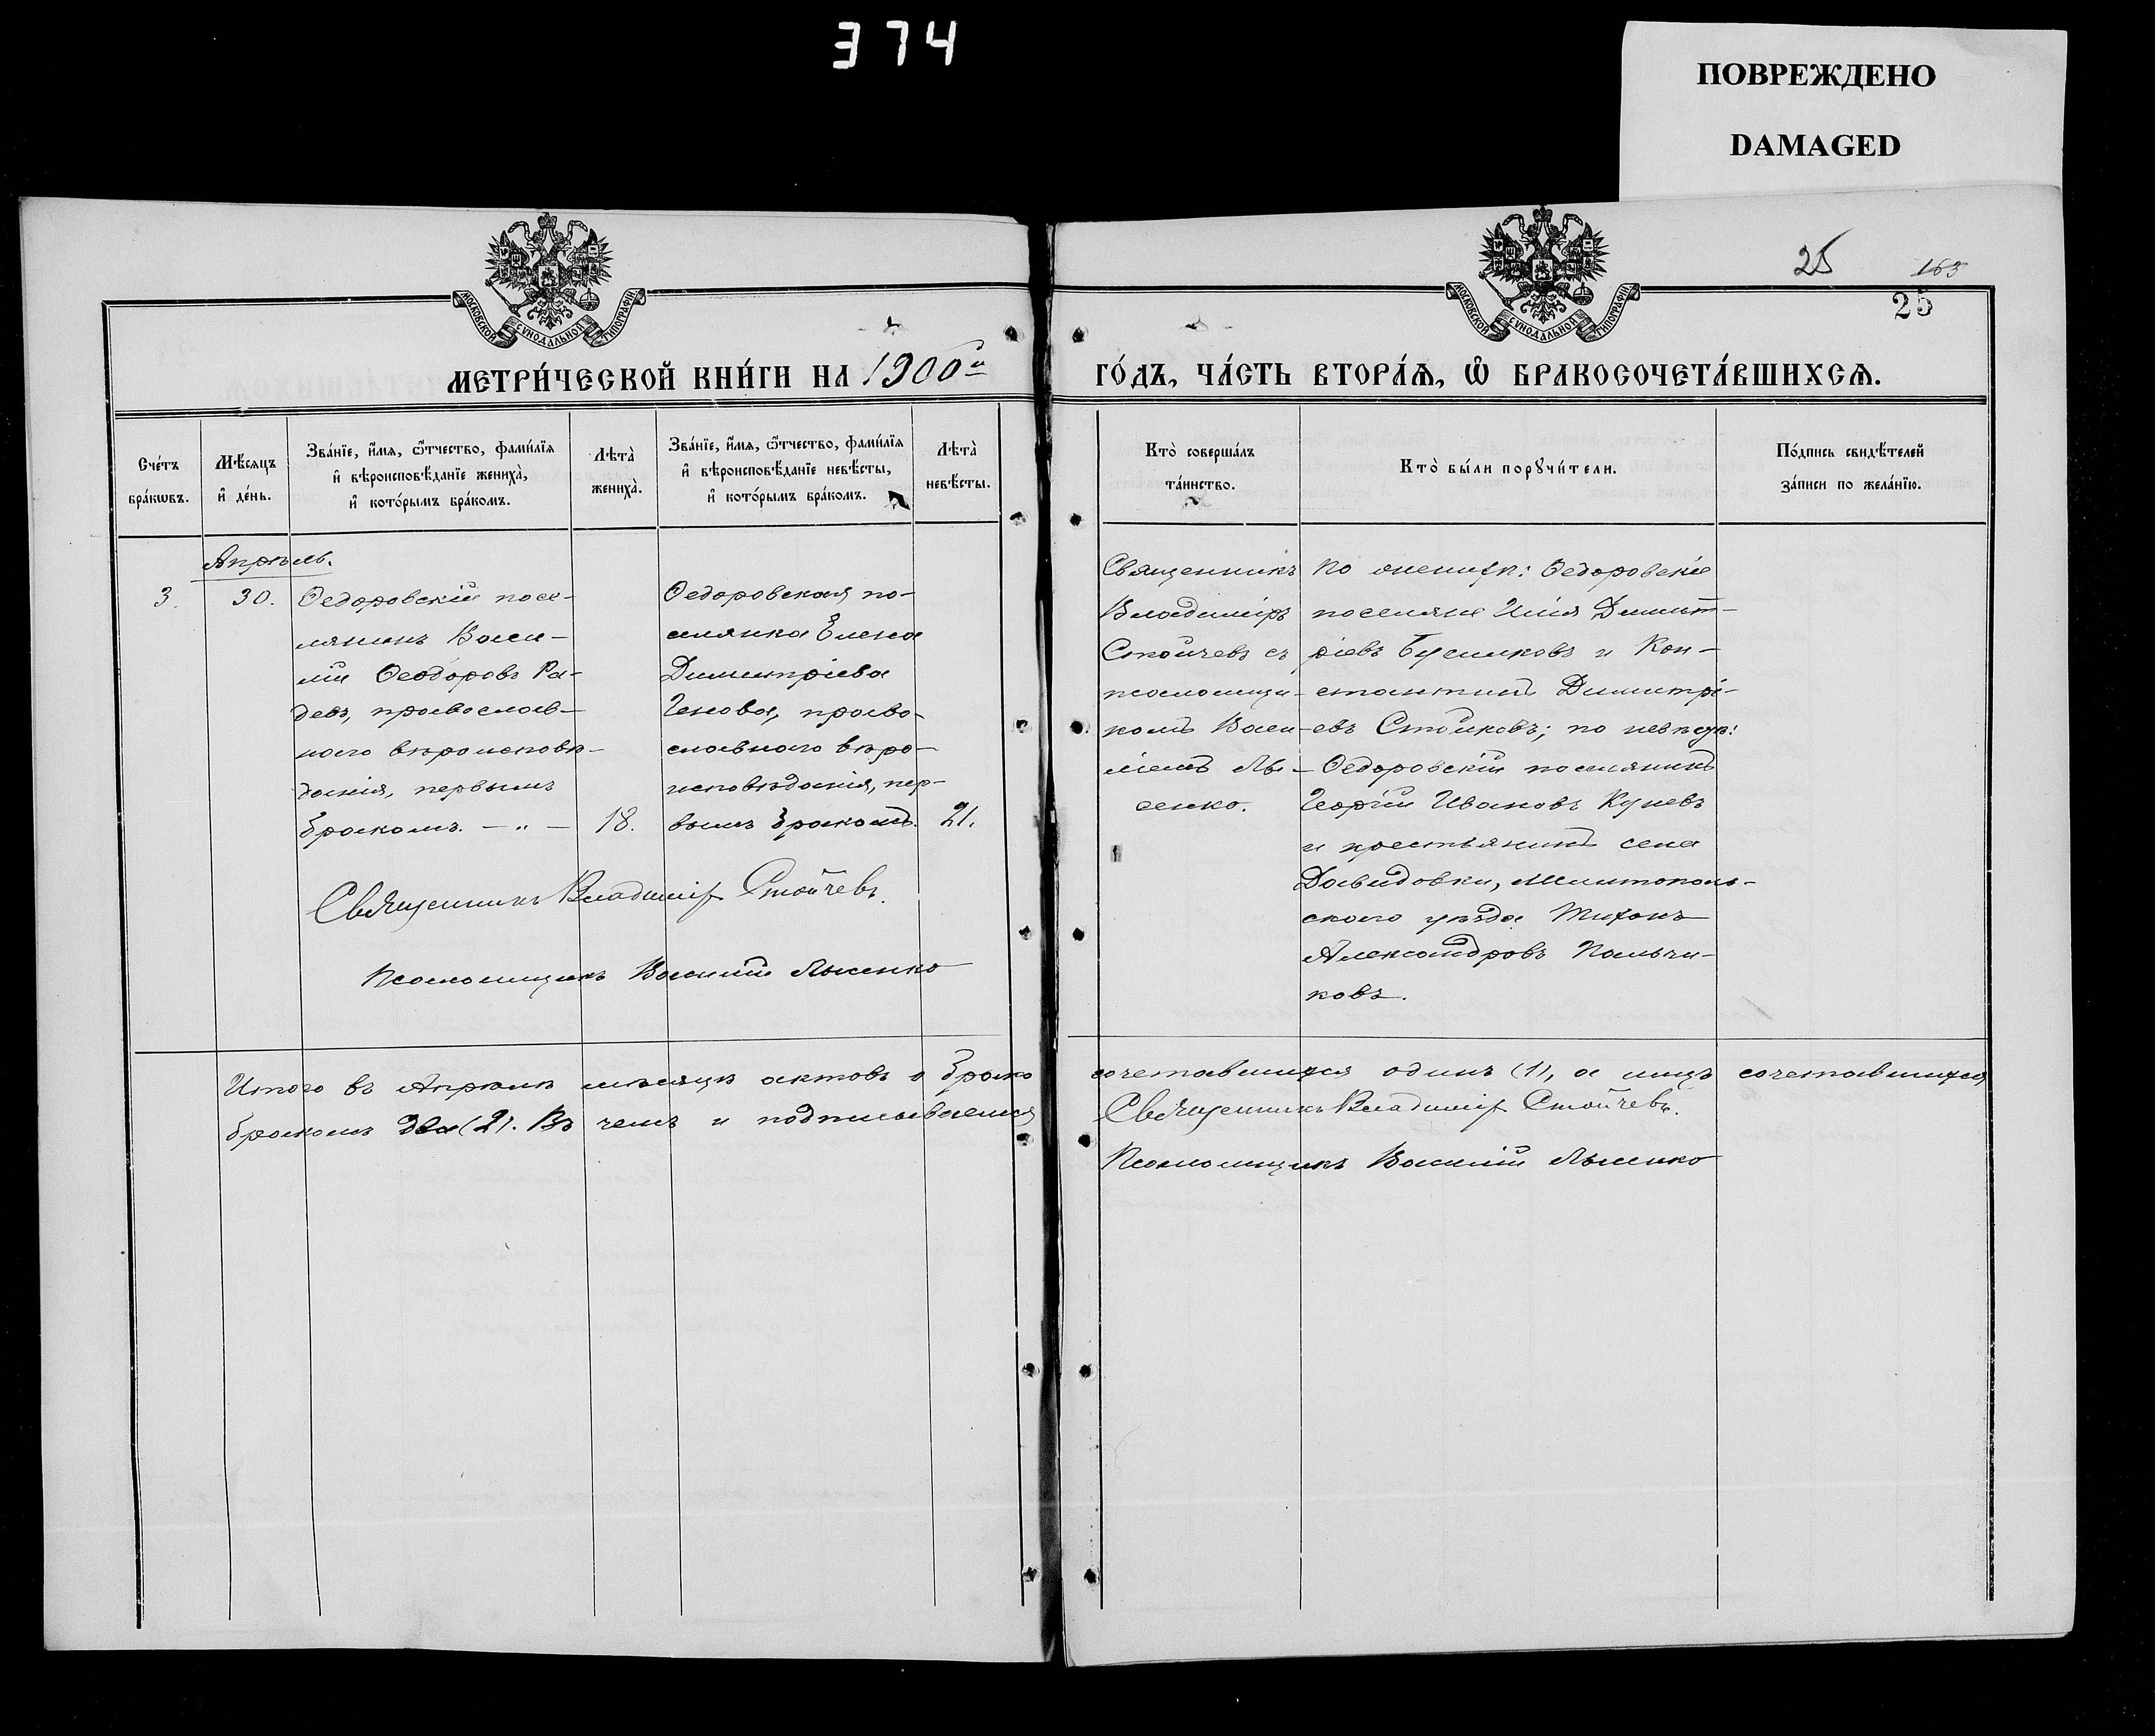 374
ПОВРЕЖДЕНО
DAMAGED
25
163
25
МОСКОВСКОЙ СѴНОДАЛЬНОЙ ТИПОГРАФІИ
МОСКОВСКОЙ СѴНОДАЛЬНОЙ ТИПОГРАФІИ
МЕТРИ́ЧЕСКОЙ КНИ́ГИ НА 1900й
ГО́ДЪ, ЧА́СТЬ ВТОРА́Ѧ, Ѽ БРАКОСОЧЕТА́ВШИХСѦ.
Сче́тъ
бра́кѡвъ.
Мѣ́сѧцъ
и҆ де́нь.
Зва́нїе, и҆́мѧ, ѻ҆́тчество, фами́лїѧ
и҆ вѣроисповѣ́данїе жениха̀,
и҆ кото́рымъ бра́комъ.
Лѣта̀
жениха̀.
Зва́нїе, и҆́мѧ, ѻ҆́тчество, фами́лїѧ
и҆ вѣроисповѣ́данїе невѣ́сты,
и҆ кото́рымъ бра́комъ.
Лѣта̀
невѣ́сты.
Кто̀ соверша́лъ
та́инство.
Кто̀ бы́ли порꙋчи́тели.
По́дпись свидѣ́телей
за́писи по жела́нїю.
Апрѣль.
3.
30.
Ѳедоровскій посе-
лянинъ Васи-
лій Ѳеодоровъ Ра-
девъ, православ-
наго вѣроисповѣ-
данія, первымъ
бракомъ. — „ —
18.
Ѳедоровская по-
селянка Елена
Димитріева
Генова, право-
славнаго вѣро-
исповѣданія, пер-
вымъ бракомъ.
21.
Священникъ Владиміръ Стойчевъ.
Псаломщикъ Василій Лысенко
Священникъ
Владиміръ
Стойчевъ съ
псаломщи-
комъ Васи-
ліемъ Лы-
сенко.
по женихѣ: Ѳедоровскіе
поселяне Илія Димит-
ріевъ Бусиловъ и Кон-
стантинъ Димитрі-
евъ Стойковъ; по невѣстѣ:
Ѳедоровскій поселянинъ
Георгій Ивановъ Куневъ
и крестьянинъ села
Давидовки, Мелитополь-
скаго уѣзда Тихонъ
Александровъ Пальчи-
ковъ.
Итого въ Апрѣлѣ мѣсяцѣ актовъ о брако
сочетавшихся одинъ (1), а лицъ сочетавшихся
бракомъ два (2). Въ чемъ и подписываемся
Священникъ Владиміръ Стойчевъ.
Псаломщикъ Василій Лысенко